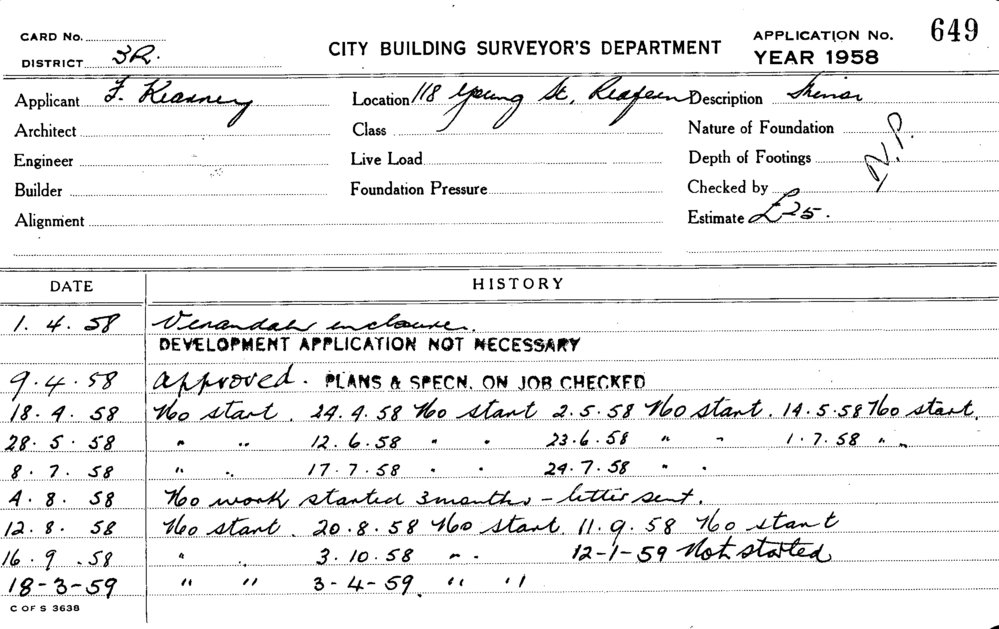 CARD No.
DISTRICT 3R.
CITY BUILDING SURVEYOR'S DEPARTMENT
APPLICATION No. 649
YEAR 1958
Applicant F. Kearney Location 118 Young St, Redfern Description Minor
Architect Class Nature of Foundation
Engineer Live Load Depth of Footings N.P.
Builder Foundation Pressure Checked by
Alignment Estimate £25.
DATE HISTORY
1. 4. 58 Verandah enclosure.
DEVELOPMENT APPLICATION NOT NECESSARY
9. 4. 58 approved. PLANS & SPECN. ON JOB CHECKED
18. 4. 58 No start. 24. 4. 58 No start 2. 5. 58 No start. 14. 5. 58 No start.
28. 5. 58 " " 12. 6. 58 " " 23. 6. 58 " " 1. 7. 58 " "
8. 7. 58 " " 17. 7. 58 " " 24. 7. 58 " "
4. 8. 58 No work started 3 months - letter sent.
12. 8. 58 No start. 20. 8. 58 No start. 11. 9. 58 No start
16. 9. 58 " " 3. 10. 58 " " 12-1-59 Not started
18-3-59 " " 3-4-59. " "
C OF S 3638